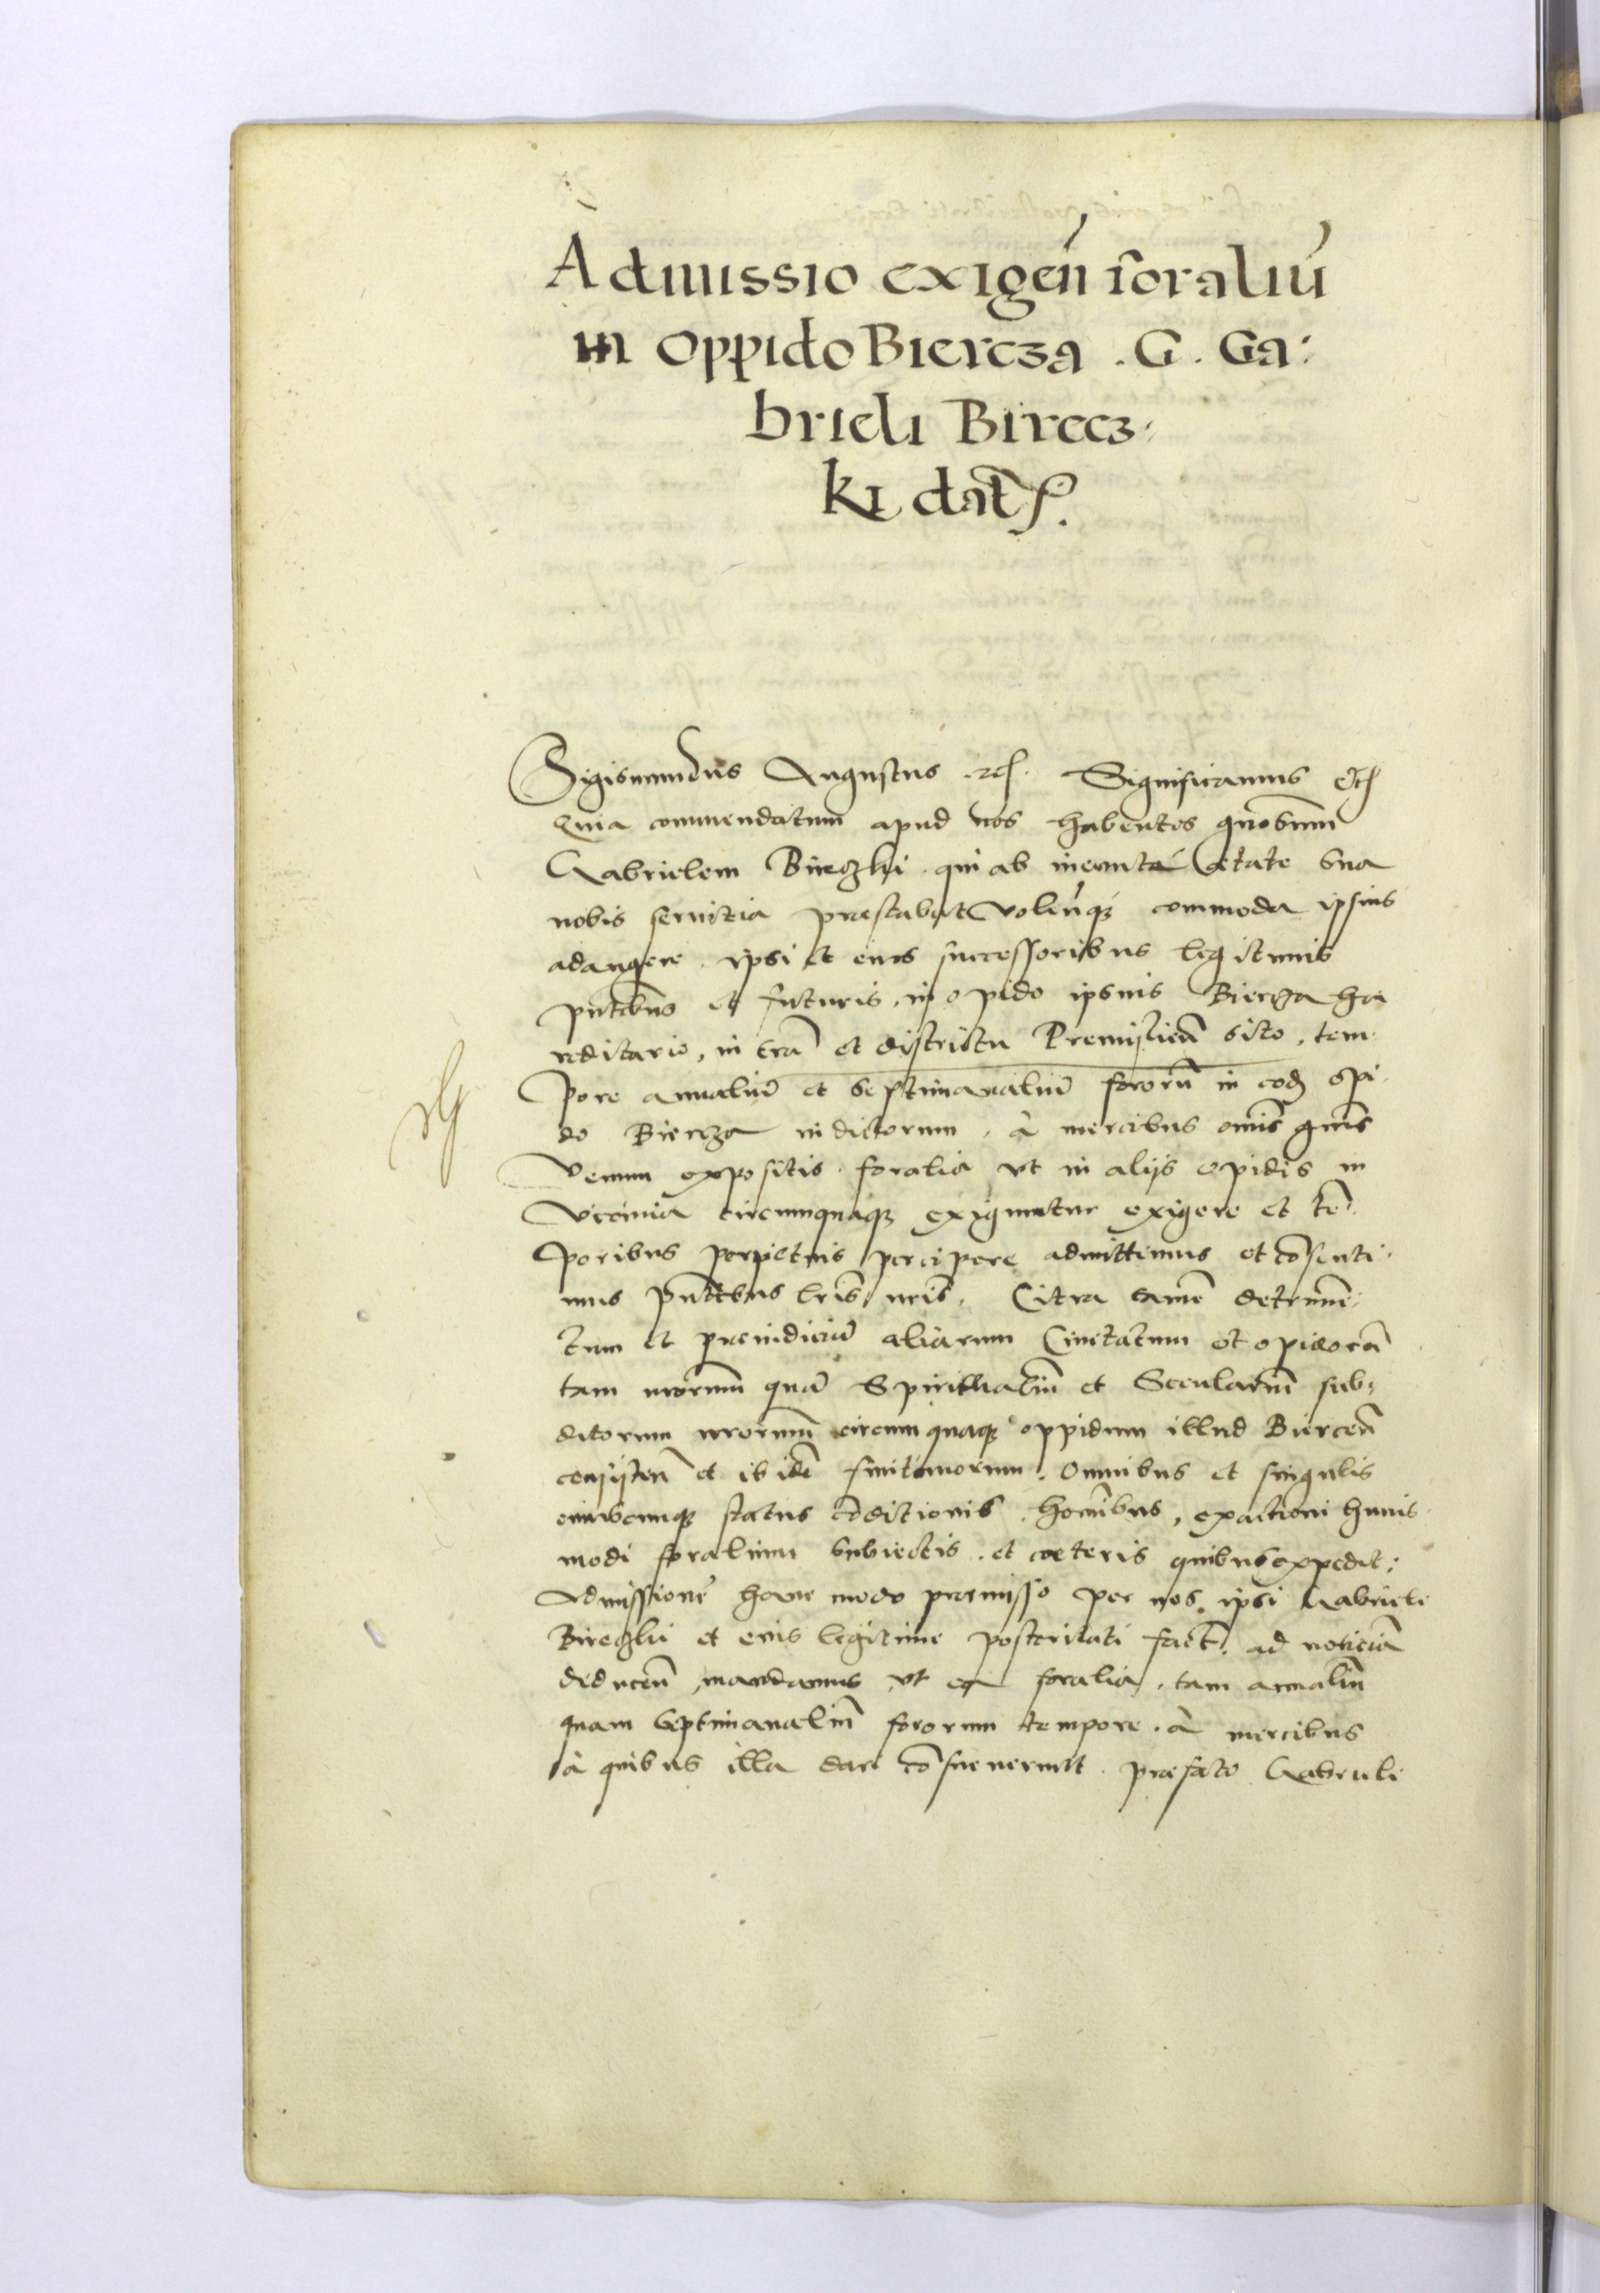 Admissio exigen̄ foraliū
in oppido Biercza . G . Ga:
brieli Bircz:
ki dat̄.
Sigismundus Augustus etc. Significamus etc
Quia commendatum apud nos habentes g̃nosum̃
Gabrielem Birczki qui ab ineunte aetate sua
nobis servitia praestabat Volen̄q3 commoda ipsius
adaugere ipsi et eius successoribus legitimis
pn̄tibus et futuris, in opido ipsius Biercza hae
reditario, in terrã et districtu Premislien̄ sito, tem
pore annualiū et septimanaliū fororū in eod̃ opi
do Biercza indictorum, à mercibus om̃is gñis
Venum expositis foralia vt in alijs opidis in
Vicinia circumquaq3 exiguntur exigere et tē
poribus perpetuis percipere admittimus et cōsenti
mus pn̄tibus lrīs nrīs. Citra tamē detrimē
tum et preiudiciū aliarum Civitatum et opidorū
tam nrōrum quã Spiritualiū et Seculariū sub:
ditorum nrōrum circumquaq3 oppidum illud Biercen̄
consisten̄ et ibidē finitimorum. Omnibus et singulis
cuiuscunq3 status cōditionis hom̃ibus, exactioni huius
modi foralium subiectis et caeteris quibus expedit:
Admissionē hanc modo praemisso per nos ipsi Gabrieli
Birczki et eius legitime posteritati fact̄ ad noticiã
deducen̄ mandamus vt ea foralia tam annaliū
quam septimanaliū fororum tempore à mercibus
à quibus illa dari cōsueverunt praefato Gabrieli